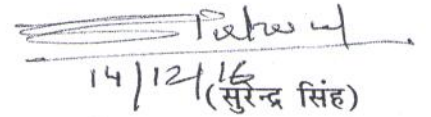 14/12/16
(सुरेन्द्र सिंह)